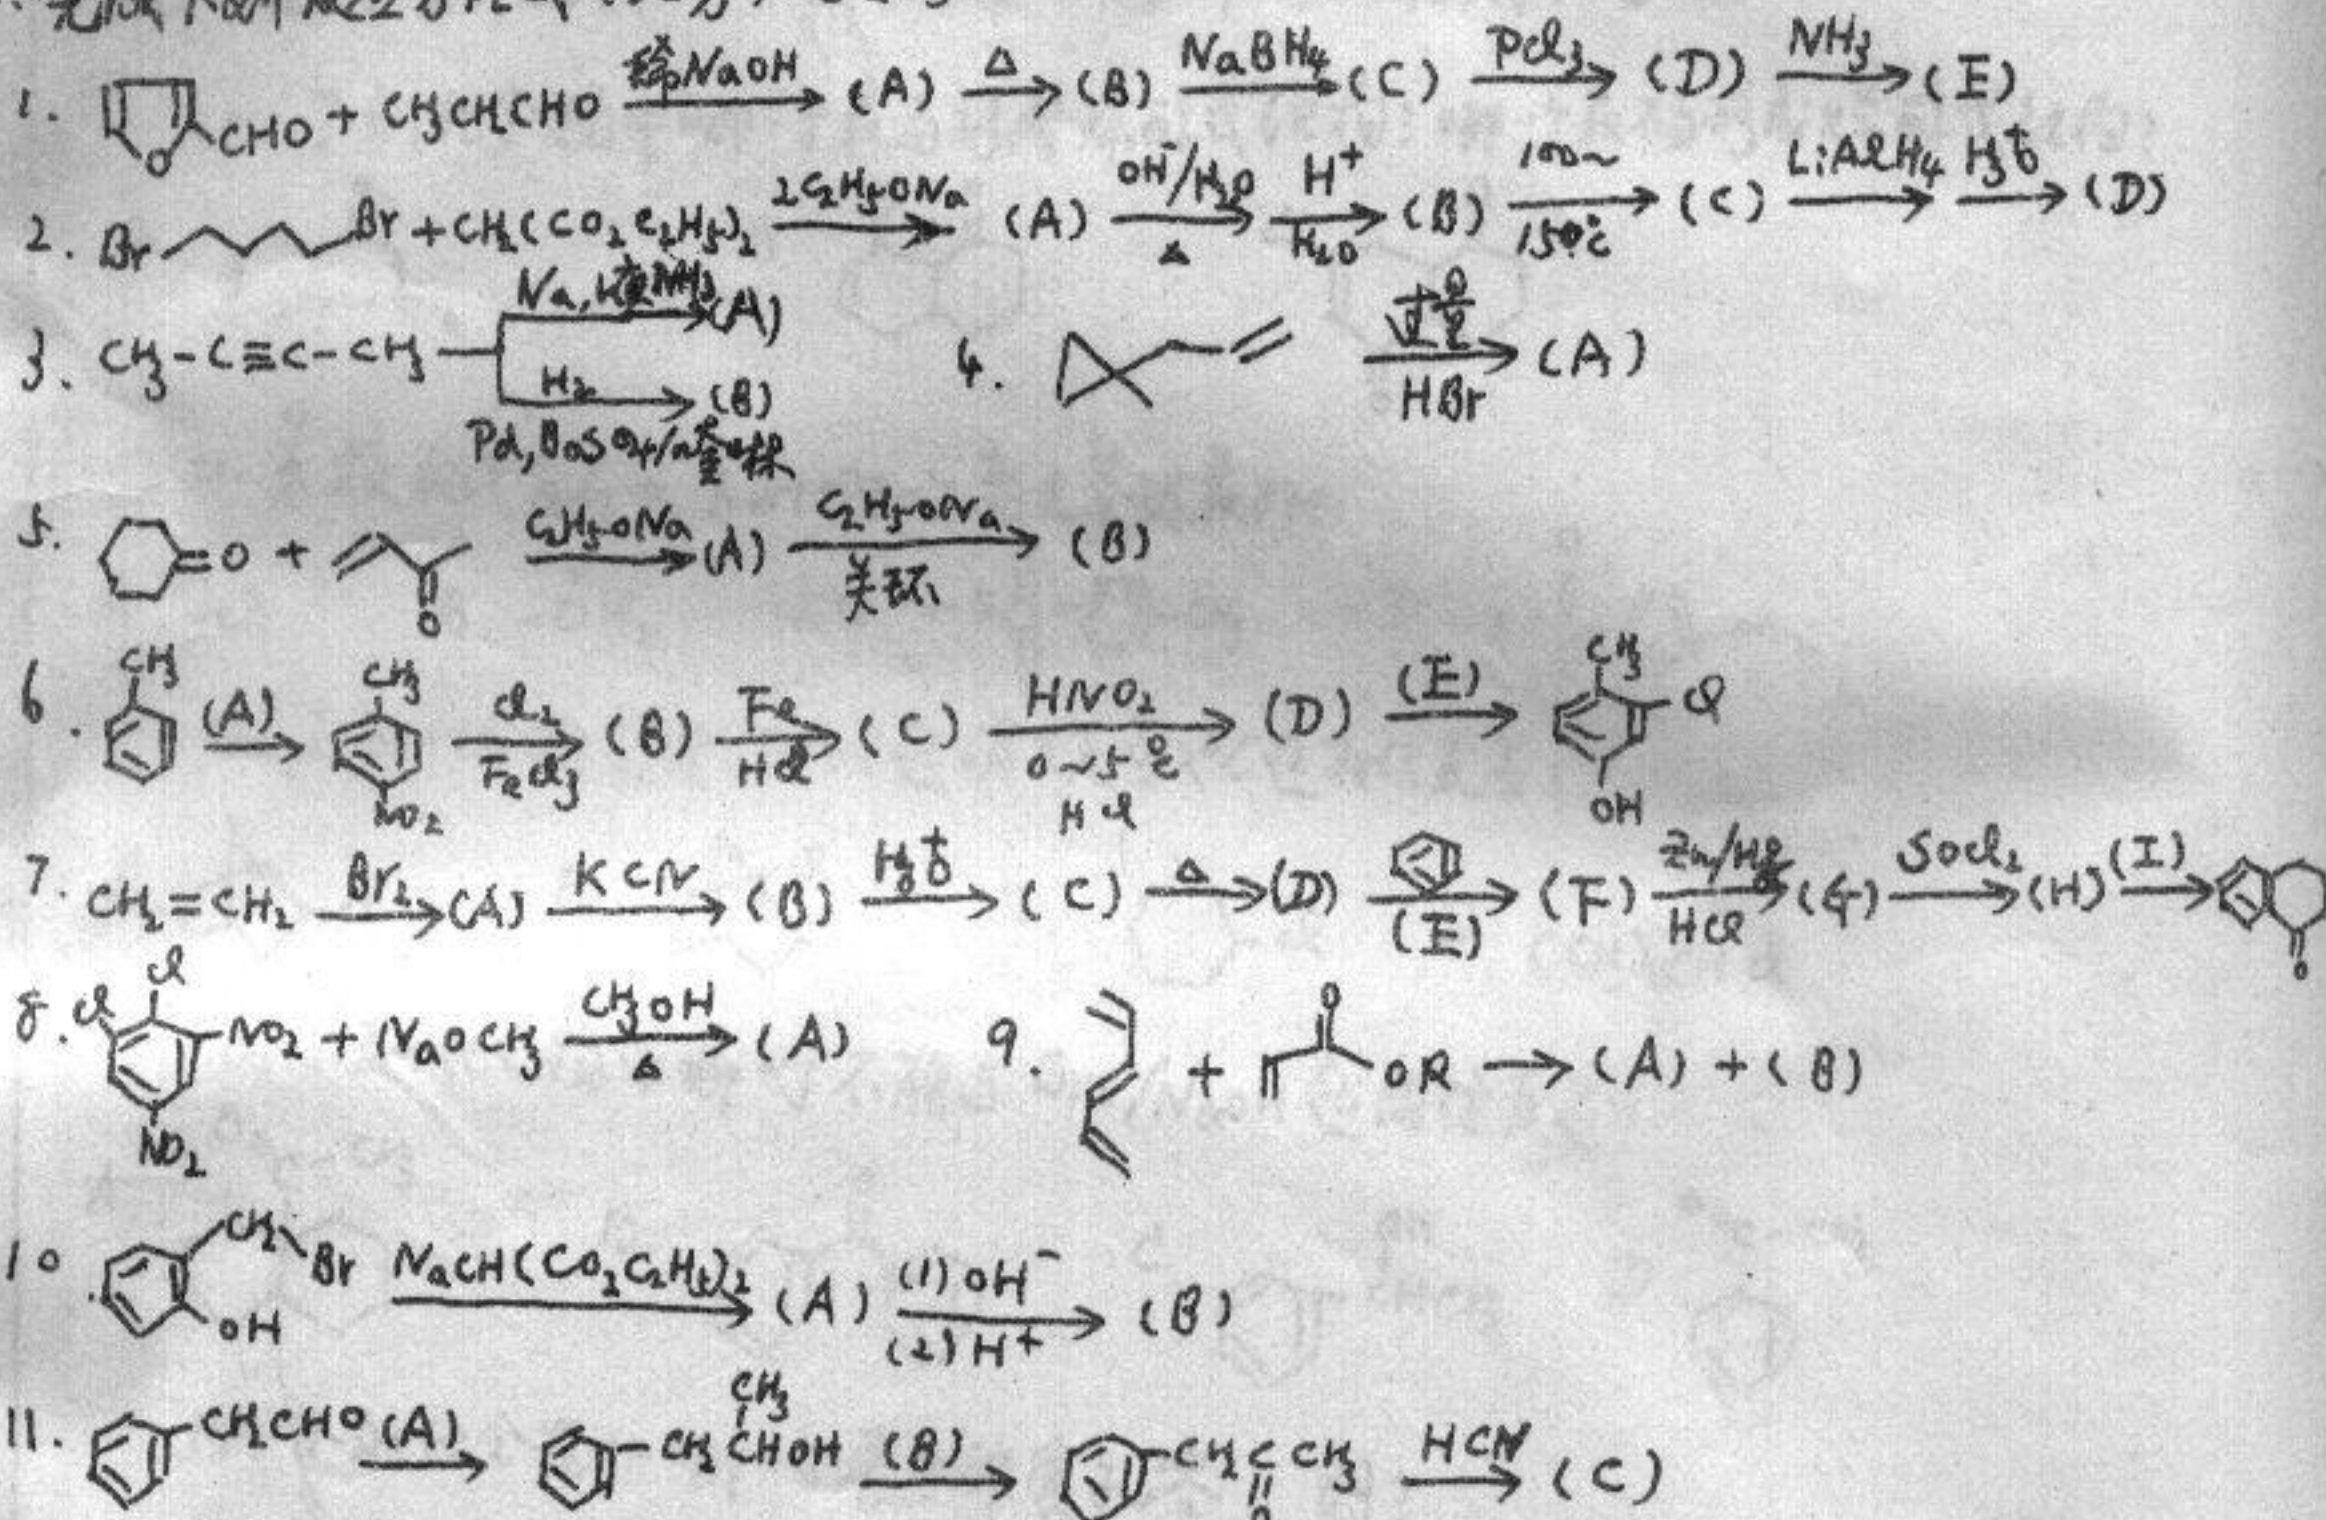 1. O CHO + CH3CH2CHO 稀NaOH (A) △ (B) NaBH4 (C) PCl3 (D) NH3 (E)
2. Br Br + CH2(CO2C2H5)2 2C2H5ONa (A) OH-/H2O △ H+ H2O (B) 100~150℃ (C) LiAlH4 H3+O (D)
3. CH3-C≡C-CH3 Na, 液NH3 (A) H2 Pd, BaSO4/喹啉 (B)
4. 过量 HBr (A)
5. =O + O C2H5ONa (A) C2H5ONa 关环 (B)
6. CH3 (A) CH3 NO2 Cl2 FeCl3 (B) Fe HCl (C) HNO2 0~5℃ HCl (D) (E) CH3 Cl OH
7. CH2=CH2 Br2 (A) KCN (B) H3+O (C) △ (D) (E) (F) Zn/Hg HCl (G) SOCl2 (H) (I) O
8. Cl Cl NO2 NO2 + NaOCH3 CH3OH △ (A)
9. + O OR → (A) + (B)
10. CH2 Br OH NaCH(CO2C2H5)2 (A) (1) OH- (2) H+ (B)
11. CH2CHO (A) CH2CHOH CH3 (B) CH2CCH3 O HCN (C)